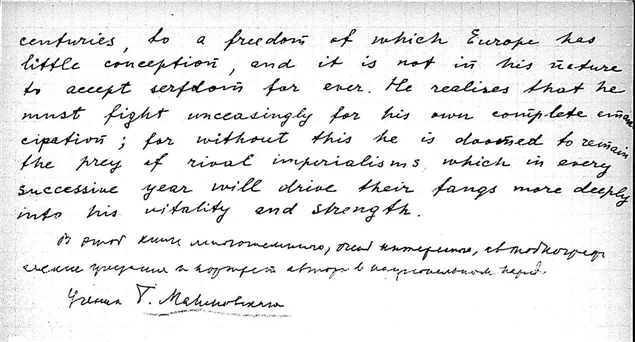 centuries, to a freedom of which Europe has
little conception, and it is not in his nature
to accept serfdom for ever. He realises that he
must fight unceasingly for his own complete eman
cipation; for without this he is doomed to remain
the prey of rival imperialisms, which in every
successive year will drive their fangs more deeply
into his vitality and strength.
В этой книге
и портрет автора в национальном